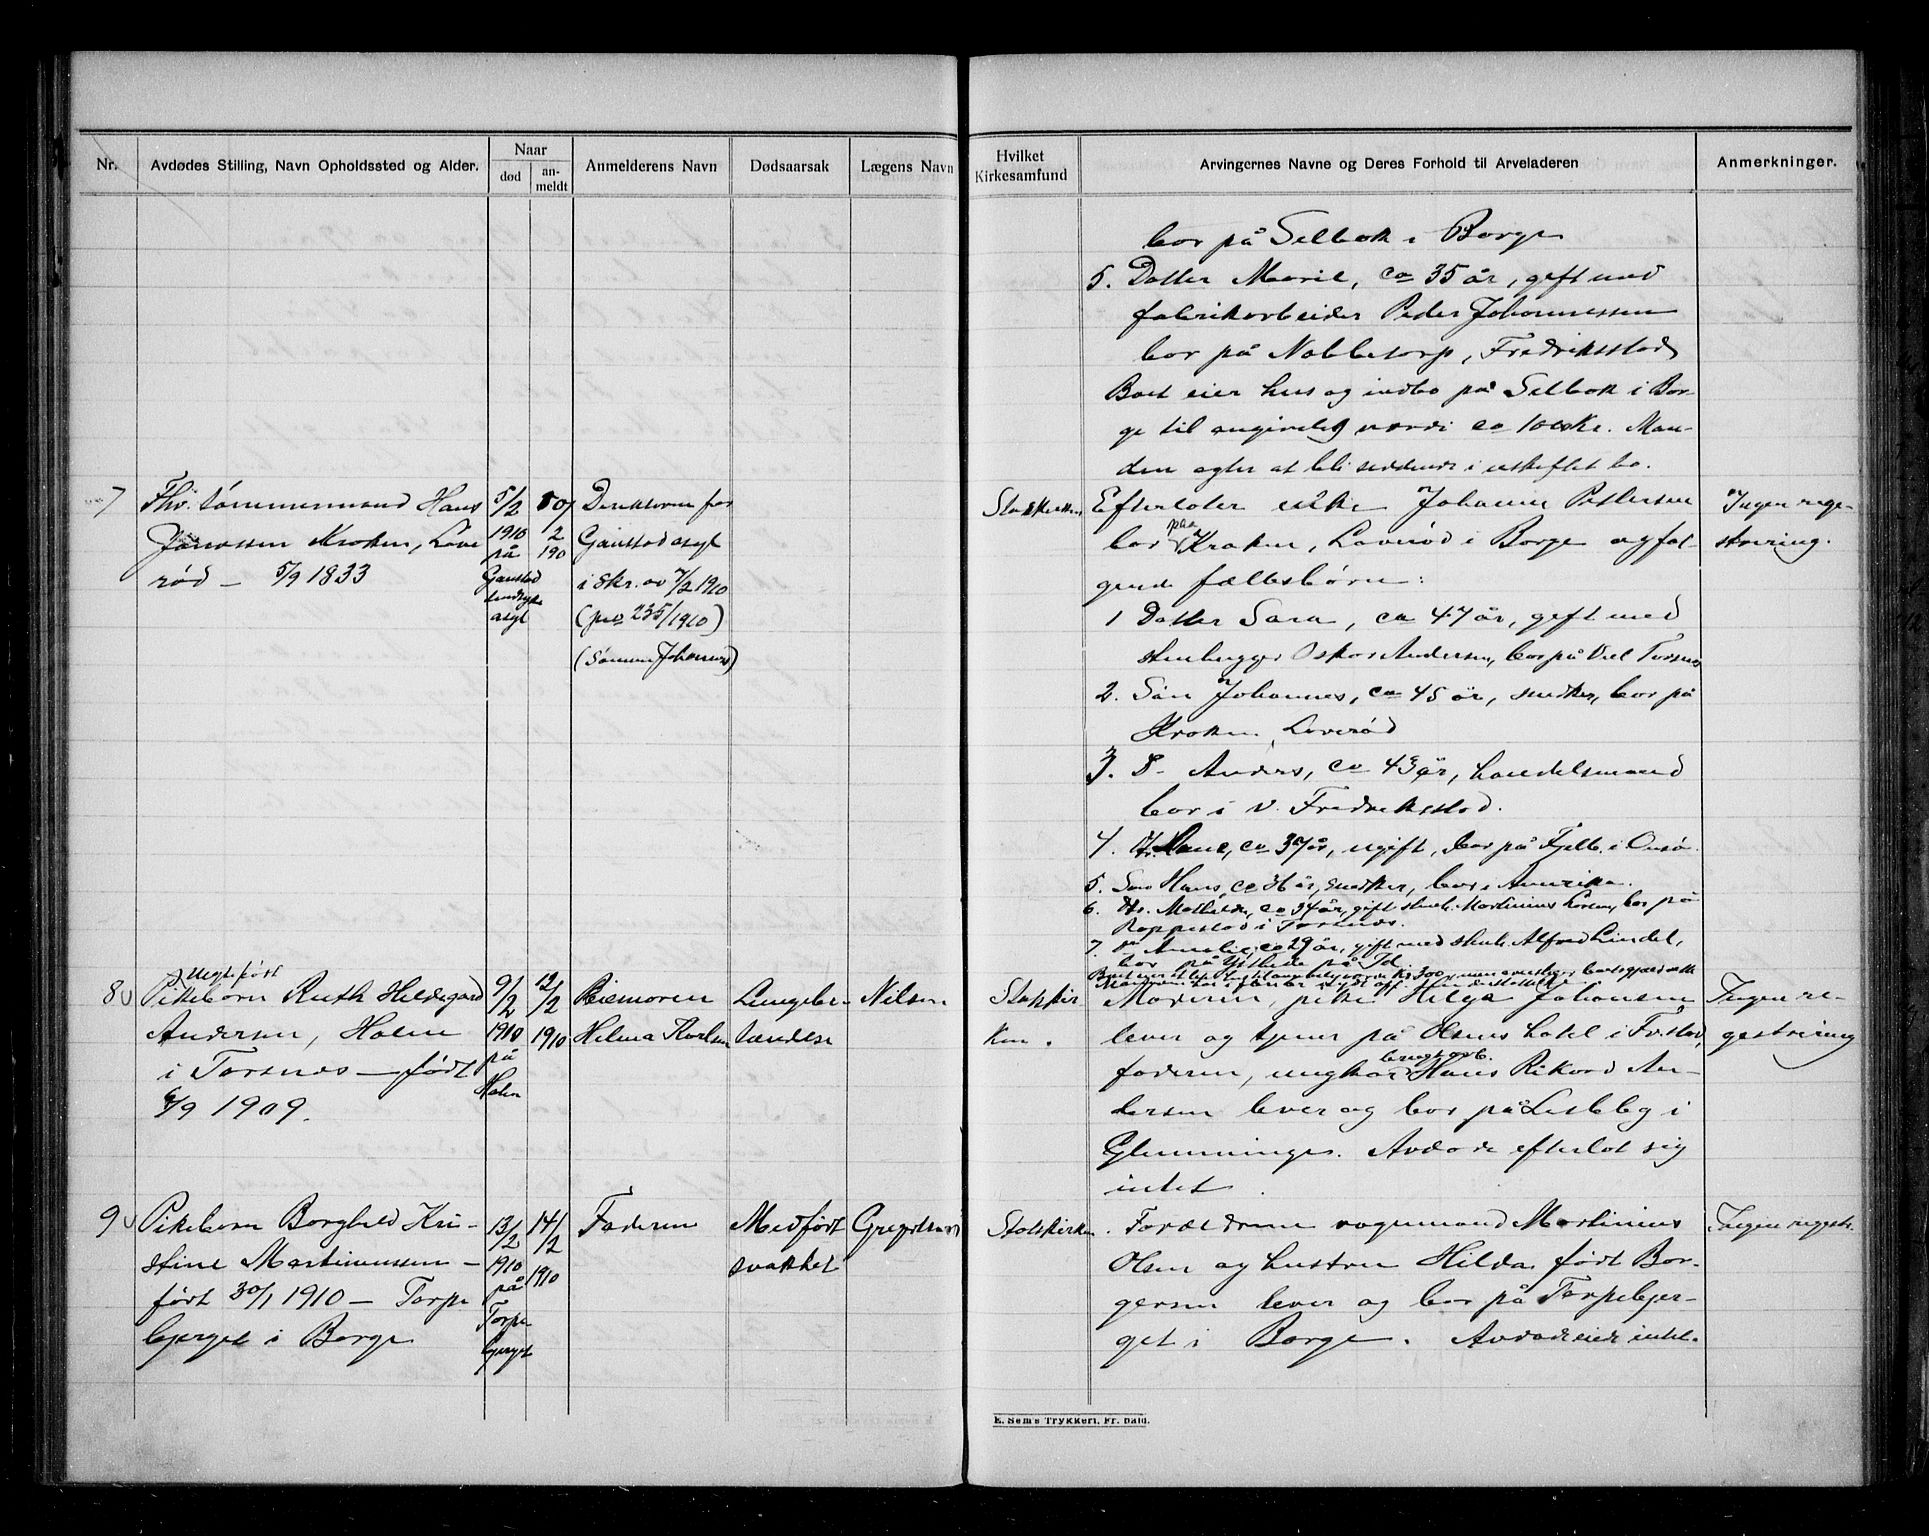 Nr.
Avdødes Stilling, Navn Opholdssted og Alder.
Naar
død
an-
meldt
Anmelderens Navn
Dødsaarsak
Lægens Navn
Hvilket
Kirkesamfund
Arvingernes Navne og Deres Forhold til Arveladeren
Anmerkninger.
bor på Selbak i Borge
5. Datter Marie, ca 35 år, gift med
fabrikarbeider Peder Johannessen
bor på Nabbetorp, Fredriksstad
Boet eier hus og indbo på Selbak i Bor-
ge til angivelig værdi ca 1000 Kr. Man-
den agter at bli siddende i uskiftet bo.
7
Fhv. tømmermand Hans
Jonassen Kroken, Love
rød – 5/9 1833
5/2
1910
på
Gaustad
sindsyke
asyl
10/
2
190
Direktøren for
Gaustad asyl
i Skr. av 7/2 1910
(jno 235/1910)
(Sønnen Johannes)
Statskirken
Efterlater enke Johanne Pettersen
bor paa Kroken, Loverød i Borge og føl-
gende fællesbørn:
1 Datter Sara, ca 47 år, gift med
stenhugger Oskar Andersen, bor på Vel Torsnes
2. Søn Johannes, ca 45 år, snedker, bor på
Kroken, Loverød
3. S– Anders, ca 43 år, handelsmand
bor i v. Fredriksstad.
4. Dtr. Lane, ca 37 år, ugift, bor på Fjelb. i Onsø.
5. Søn Hans, ca 36 år, snedker, bor i Amerika.
6. Dtr. Mathilde, ca 34 år, gift stenh. Martinius Larsen, bor på
Rappestad i Torsnes.
7. Dtr Amalie, ca 29 år, gift med stenh. Alfred Lindel,
bor på Ystehede på Id.
Ingen rege-
strering.
8
Uegtefødt
Pikebarn Ruth Hildegard
Andersen, Holm
i Torsnes – født
6/9 1909.
9/2
1910
på
Holm
12/2
1910
Pleiemoren
Helma Karlsen
Lungebe-
tændelse
Nilsen
Statskir
ken.
Moderen, pike Helga Johansen
lever og tjener på Olsens hotel i Fr.stad,
faderen, ungkar brugsarb. Hans Rikard An-
dersen lever og bor på Lisleby i
Glemminge. Avdøde efterlot sig
intet.
Ingen re-
gestrering
9
Pikebarn Borghild Kri-
stine Martinussen –
født 30/1 1910 – Torpe
bjerget i Borge
13/2
1910
på
Torpe
bjerget
14/2
1910
Faderen
Medfødt
svakhet
Gregersen
Statskirken
Forældrene vognmand Martinius
Olsen og hustru Hilda født Bor-
gersen lever og bor på Torpebjer-
get i Borge. Avdøde eiede intet.
Ingen regestr.
E. Sem's Trykkeri, Fr. hald.